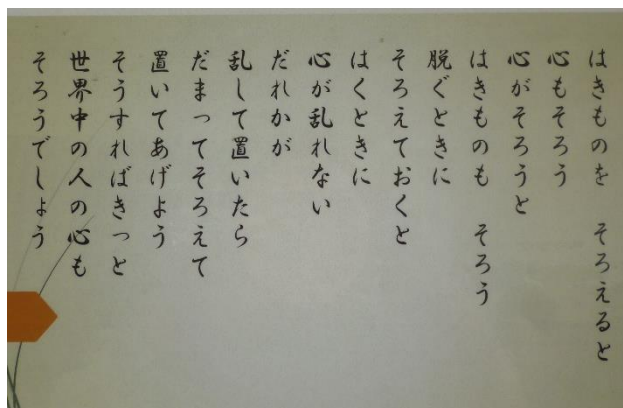 はきものを　そろえると
心もそろう
心がそろうと
はきものも　そろう
脱ぐときに
そろえておくと
はくときに
心が乱れない
だれかが
乱して置いたら
だまってそろえて
置いてあげよう
そうすればきっと
世界中の人の心も
そろうでしょう